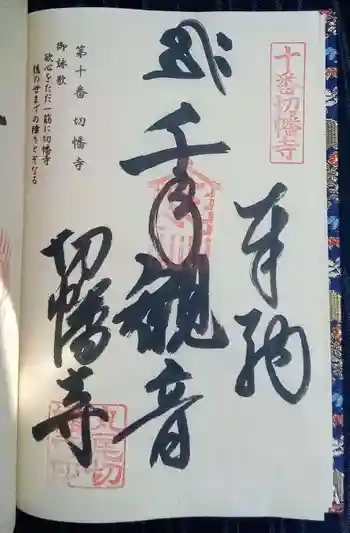 十番切幡寺
奉納
千手観音
切幡寺
第十番 切幡寺
御詠歌
欲心をただ一筋に切幡寺
後の世までの障りとぞなる